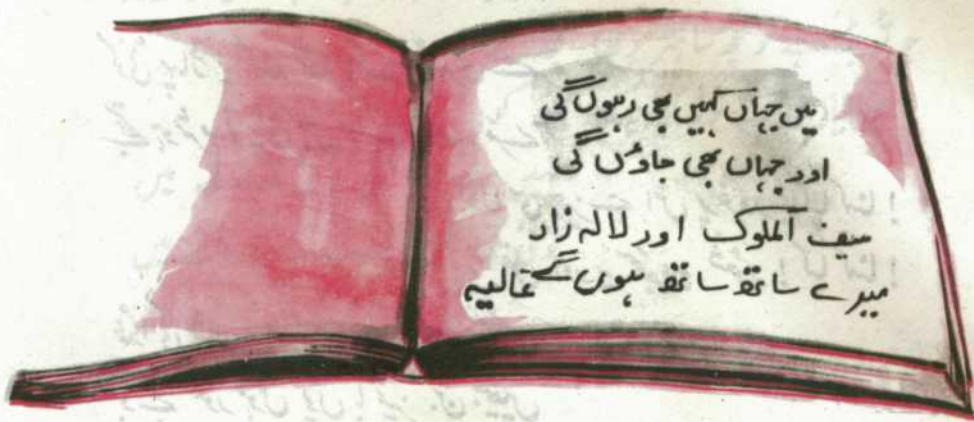 میں جہاں کہیں بھی رہوں گی
اور جہاں بھی جاؤں گی
سیف الملوک اور لالہ زار
میرے ساتھ ساتھ ہوں گے عالیہ